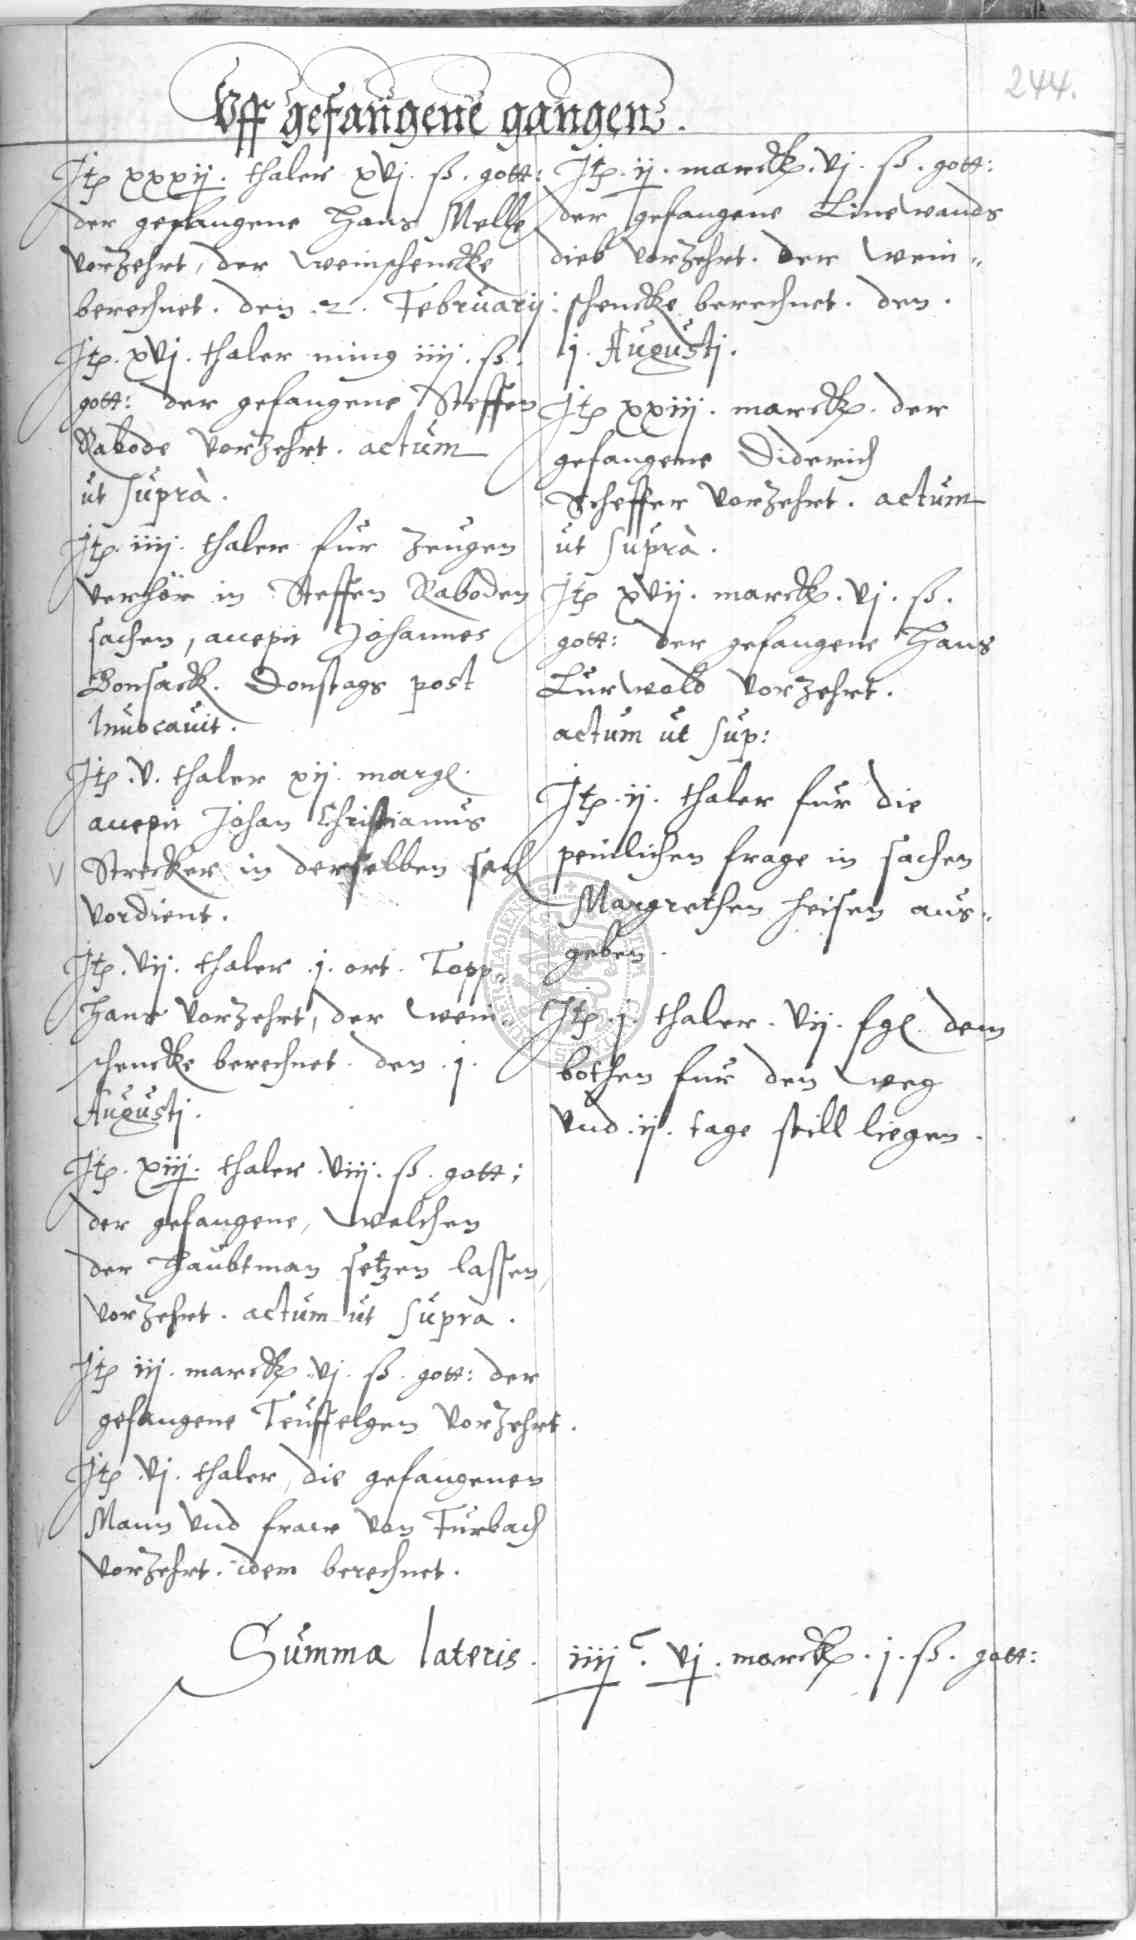 244.
Uff gefangene gangen.
Itp xxxij. thaler xvj. ß. gott:
der gefangene Hans Melle
vorzehrt, der weinschencke
berechnet. den .2. Februarij:
Itp. xvj. thaler ming iiij. ß.
gott: der gefangene Steffen
Rabode vorzehrt. actum
ut suprà.
Itp. iiij. thaler fur Zeugen
verhör in Steffen Raboden
sachen, accepit Johannes
Bonsack. Donstags post
Invocauit.
Itp. v. thaler xij. margl.
accepit Johan Christianus
Strecker in derselben sach
vordient.
Itp. vij. thaler .j. ort. Topp-
hans vorzehrt, der wein-
schencke berechnet den .j.
Augustj.
Itp. xiij. thaler viij. ß. gott:
der gefangene, welchen
der Haubtman setzen lassen,
vorzehrt. actum ut suprà.
Itp iij. marck. vj. ß. gott: der
gefangene Teuffelgen vorzehrt.
Itp vj. thaler, die gefangenen
Mann vnd fraw von Furbach
vorzehrt. idem berechnet.
Itp. ij. marck. vj. ß. gott:
der gefangene Linewands
dieb vorzehrt. der wein-
schencke berechnet. den.
j. Augustj.
Itp xxiij. marck. der
gefangene Diderich
Scheffer vorzehrt. actum
ut suprà.
Itp xvij. marck. vj. ß.
gott: der gefangene Hans
Lurwald vorzehrt.
actum ut sup:
Itp. ij. thaler fur die
peinlichen frage in sachen
Margrethen Heisen aus-
geben.
Itp. j. thaler. vij. fgl. dem
bothen fur den weg
vnd .ij. tage still liegen.
Summa lateris. iiij c. vj. marck. j. ß. gott: